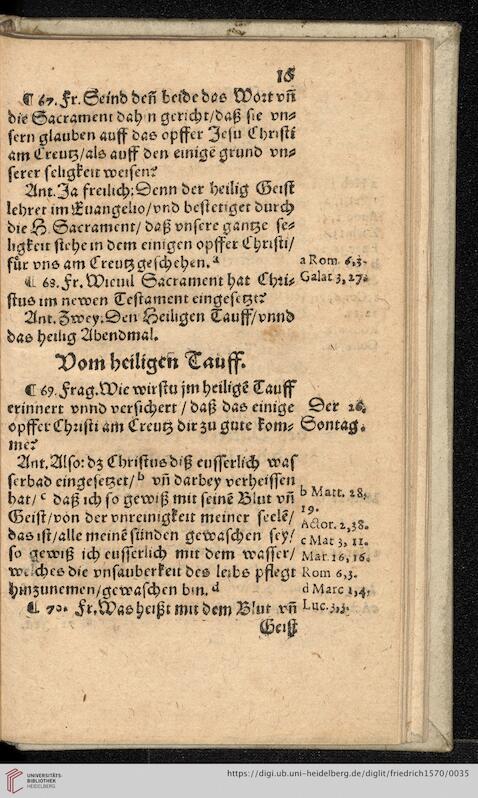 16
¶ 67. Fr. Seind deñ beide das Wort vñ
die Sacrament dahin gericht/daß sie vn=
sern glauben auff das opffer Jesu Christi
am Creutz/als auff den einigẽ grund vn=
serer seligkeit weisen?
Ant. Ja freilich: Denn der heilig Geist
lehret im Euangelio/vnd bestetiget durch
die H. Sacrament/ daß vnsere gantze se=
ligkeit stehe in dem einigen opffer Christi/
für vns am Creutz geschehen. a
a Rom. 6,3.
Galat 3,27.
¶ 68. Fr. Wieuil Sacrament hat Chri=
stus im newen Testament eingesetzt?
Ant. Zwey: Den Heiligen Tauff/vnnd
das heilig Abendmal.
Vom heiligen Tauff.
¶ 69. Frag. Wie wirstu jm heiligẽ Tauff
erinnert vnnd versichert / daß das einige
opffer Christi am Creutz dir zu gute kom=
me?
Der 26.
Sontag.
Ant. Also: dz Christus diß eusserlich was
serbad eingesetzet/ b vñ darbey verheissen
hat/ c daß ich so gewiß mit seinẽ Blut vñ
Geist/von der vnreinigkeit meiner seelẽ/
das ist/alle meinẽ sünden gewaschen sey/
so gewiß ich eusserlich mit dem wasser/
welches die vnsauberkeit des leibs pflegt
hinzunemen/gewaschen bin. d
b Matt. 28,
19.
Actor. 2,38.
c Mat 3, 11.
Mar. 16,16.
Rom 6,3.
d Marc 1,4,
Luc. 3,3.
¶ 70. Fr. Was heißt mit dem Blut vñ
Geist
UNIVERSITÄTS-
BIBLIOTHEK
HEIDELBERG
https://digi.ub.uni-heidelberg.de/diglit/friedrich1570/0035